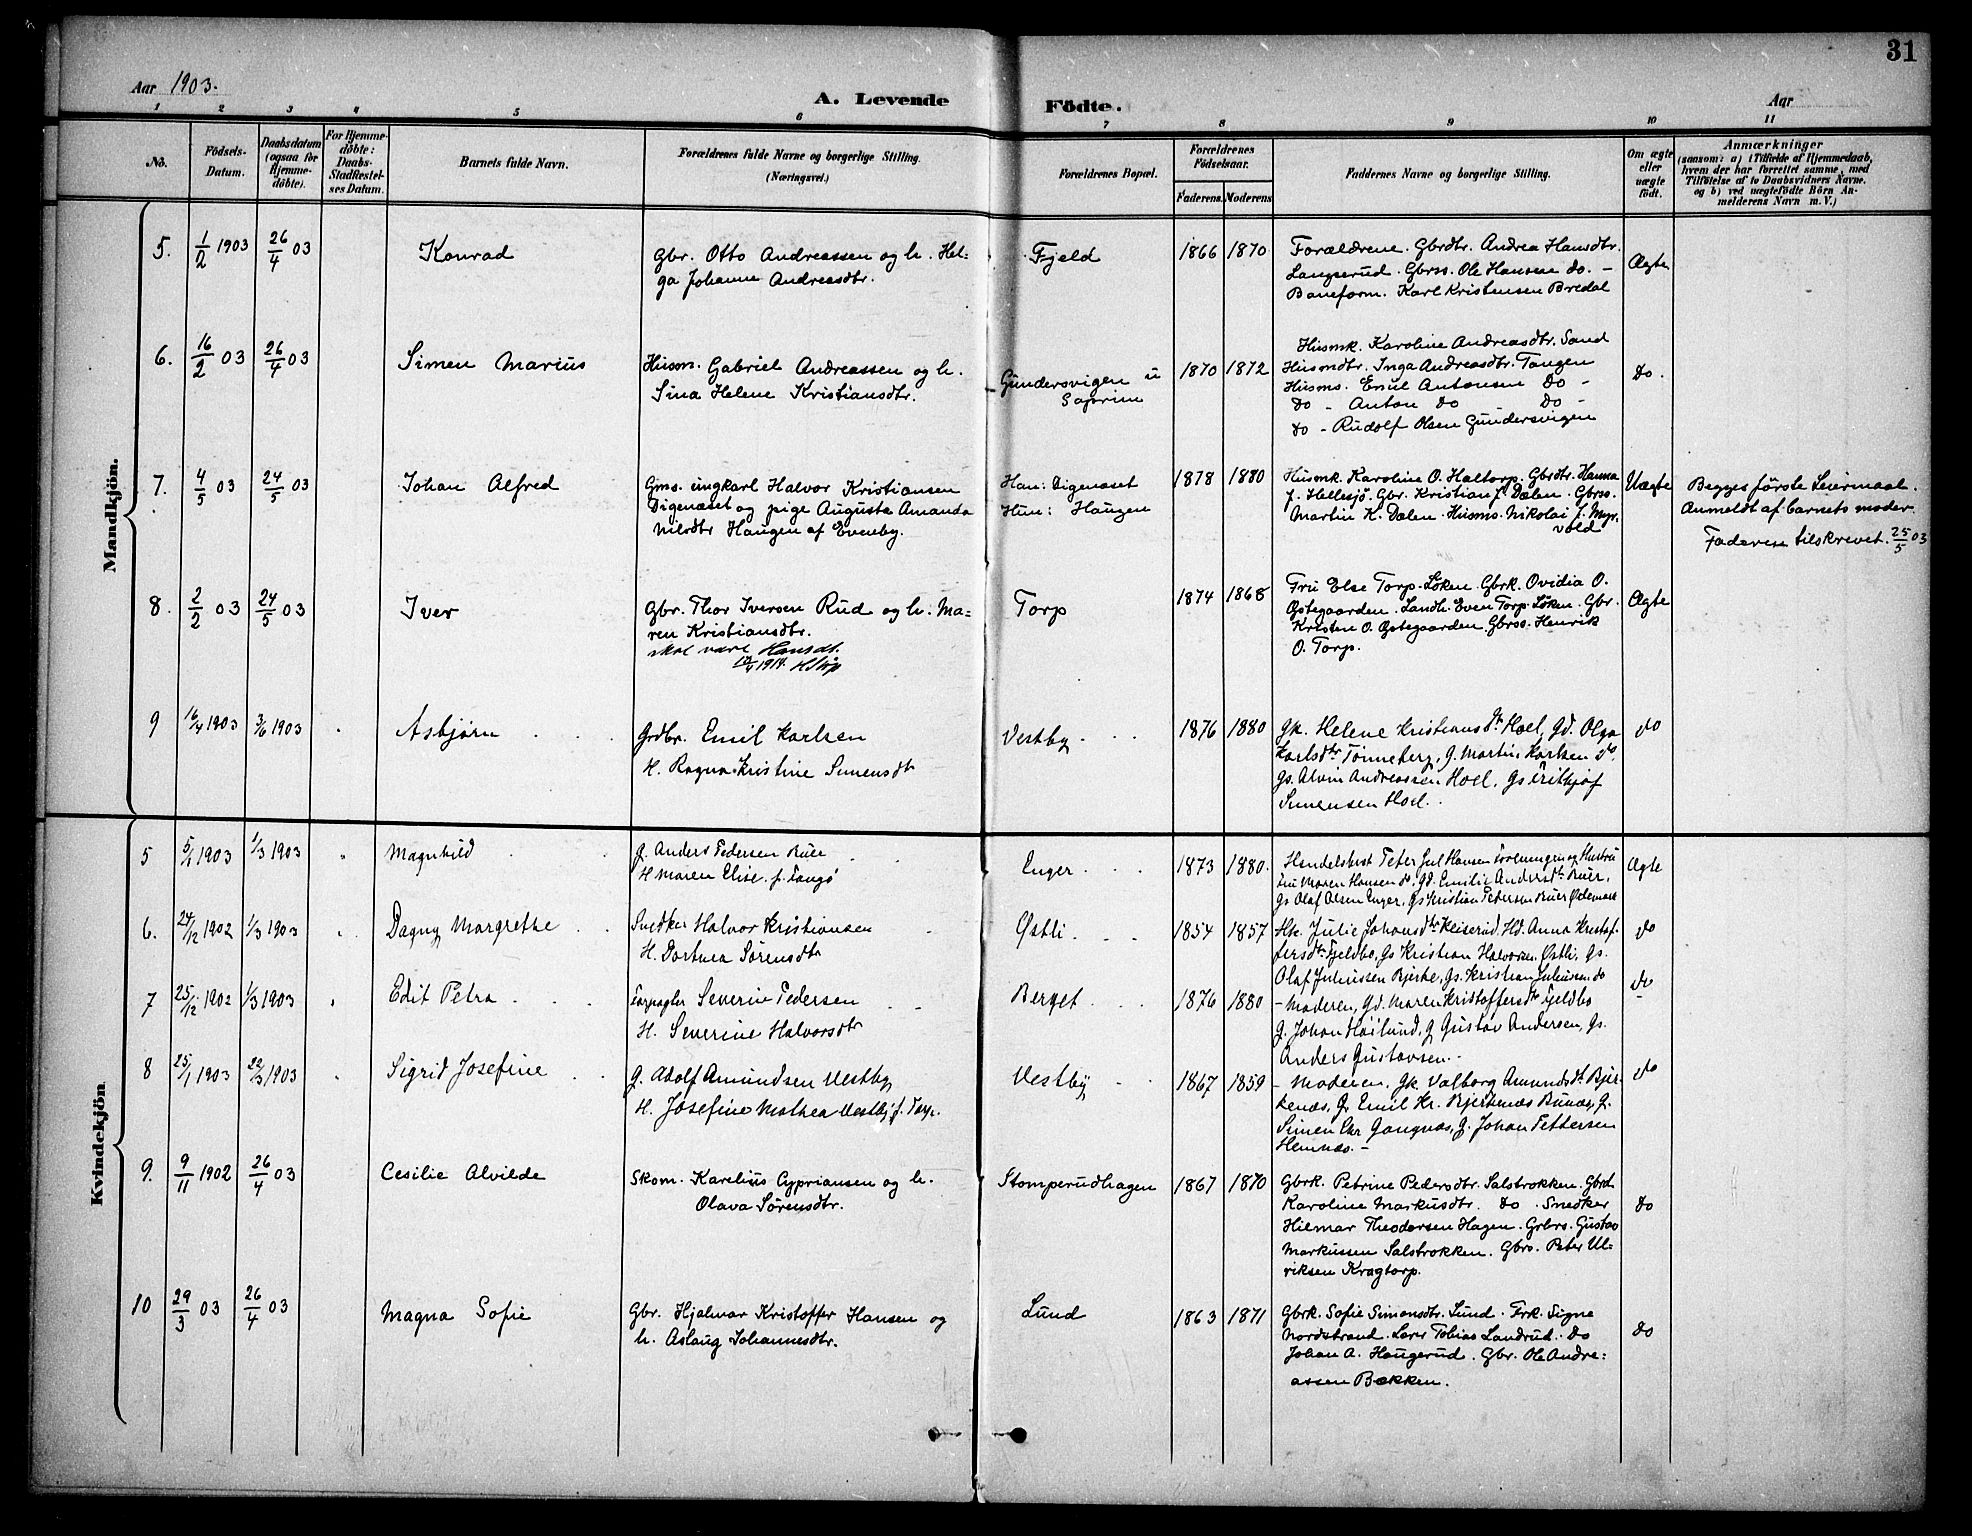 31
Aar 1903.
A. Levende Födte.
Aar
1 2 3 4 5 6 7 8 9 10 11
No.
Födsels-
Datum.
Daabsdatum
(ogsaa for
Hjemme-
döbte).
For Hjemme-
döbte:
Daabs-
Stadfæstel-
ses Datum.
Barnets fulde Navn.
Forældrenes fulde Navne og borgerlige Stilling.
(Næringsvei.)
Forældrenes Bopæl.
Forældrenes
Födselsaar.
Faderens. Moderens
Faddernes Navne og borgerlige Stilling.
Om ægte
eller
uægte
födt.
Anmærkninger
(saasom: a) i Tilfælde af Hjemmedaab,
hvem der har forrettet samme, med
Tilföielse af to Daabsvidners Navne.
og b) ved uægtefödte Börn An-
melderens Navn m. V.)
Mandkjön.
5. 1/2 1903 26/4 03 Konrad
Gbr. Otto Andreassen og h. Hel-
ga Johanne Andreasdtr.
Fjeld
1866 1870
Forældrene. Gbrdtr. Andrea Hansdtr.
Langserud. Gbrss. Ole Hansen do. -
Baneform. Karl Kristensen Bredal
Ægte
6. 16/2 03 26/4 03 Simen Marius
Husm. Gabriel Andreassen og h.
Sina Helene Kristiansdtr.
Gundersvigen u
Soprim
1870 1872
Husmk. Karoline Andreasdtr. Sand
Husmdtr. Inga Andreasdtr. Tangen
Husms. Emil Antonsen Do -
Do - Anton Do Do -
Do - Rudolf Olsen Gundersvigen
Do.
7. 4/5 03 24/5 03 Johan Alfred
Gms. ungkarl Halvor Kristiansen
Digenæset og pige Auguste Amanda
Nilsdtr Haugen af Evenby.
Han: Digenæset
Hun: Haugen
1878 1880
Husmk. Karoline O. Haltorp. Gbrdtr. Hanna
J. Hellesjö. Gbr. Kristian J. Dælen. Gbrss.
Martin K. Dælen. Husms. Nikolai J. Myr-
vold
Uægte
Begges förste Leiermaal.
Anmeldt af barnets moder.
Faderen tilskrevet. 25/5 03
8. 2/2 03 24/5 03 Iver
Gbr. Thor Iversen Rud og h. Ma-
ren Kristiansdtr.
skal være Hansdt.
1914.
Torp
1874 1868
Fru Else Torp. Löken. Gbrk. Ovidia O.
Østegaarden. Landh. Even Torp. Löken. Gbr.
Kristen O. Østegaarden. Gbrss. Henrik
O. Torp.
Ægte
9 16/4 1903 3/6 1903 Asbjørn
Grdbr. Emil Karlsen
H. Ragna Kristine Simensdtr
Vestby
1876 1880
Gk. Helene Kristiansdtr Hoel, Gd. Olga
Karlsdtr Tønneberg, G. Martin Karlsen do.
Gs. Alvin Andreassen Hoel. Gs Fritjof
Simensen Hoel.
do
Kvindekjön
5 5/1 1903 1/3 1903 " Magnhild
G. Anders Pedersen Buer
H Maren Elise f. Tangø
Enger
1873 1880.
Peter Jul Hansen Foreningen og Hustru
Fru Maren Hansen do. Gd. Emilie Andersdtr Buer,
Gs Olaf Olsen Enger, Gs Kristian Pedersen Buer Ødemark
Ægte
6. 24/12 1902 1/3 1903 " Dagny Margrethe
Snedker Halvor Kristiansen
H. Dorthea Sørensdtr
Østli
1854 1857
Hk. Julie Johansdtr Keiserud, Hd. Anna Kristof-
fersdtr Fjeldbo, Gs Kristian Halvorsen Østli, Gs.
Olaf Juliussen Bjerke, Gs. Kristian Juliussen do
do
7 25/12 1902 1/3 1903 " Edit Petra
Severin Pedersen
H. Severine Halvorsdtr
Berget
1876 1880
- Moderen, Gd. Maren Kristoffersdtr Fjeldbo
G. Johan Høilund, G Gustav Andersen, Gs.
Anders Gustavsen. -
do
8 25/1 1903 22/3 1903 " Sigrid Josefine
G. Adolf Amundsen Vestby
H. Josefine Mathea Vestby f. Torp.
Vestby
1867 1859
- Moderen, Gk. Valborg Amundsdtr Bjer-
kenæs, G. Emil Kr. Bjerkenæs Bunæs, G.
Simen Chr Gangnæs, G. Johan Pettersen
Hemnæs. -
do
9. 9/11 1902 26/4 03 Cesilie Alvilde
Skom. Karelius Cypriansen og h.
Olava Sörensdtr.
Stomperudhagen
1867 1870
Gbrk. Petrine Pedersdtr. Salstrokken. Gbrd.
Karoline Markusdtr. Do. Snedker
Hilmar Theodorsen Hagen. Grbrs. Gustav
Markussen Salstrokken. Gbrs. Peter Ul-
riksen Kragtorp.
Do
10 29/3 03 26/4 03 Magna Sofie
Gbr. Hjalmar Kristoffer Hansen og
h. Aslaug Johannesdtr.
Lund
1863 1871
Gbrk. Sofie Simonsdtr. Lund. Frk. Signe
Nordstrand. Lærer Tobias Landrud. Do
Johan A. Haugerud. Gbr. Ole Andre:
assen Bækken.
Do